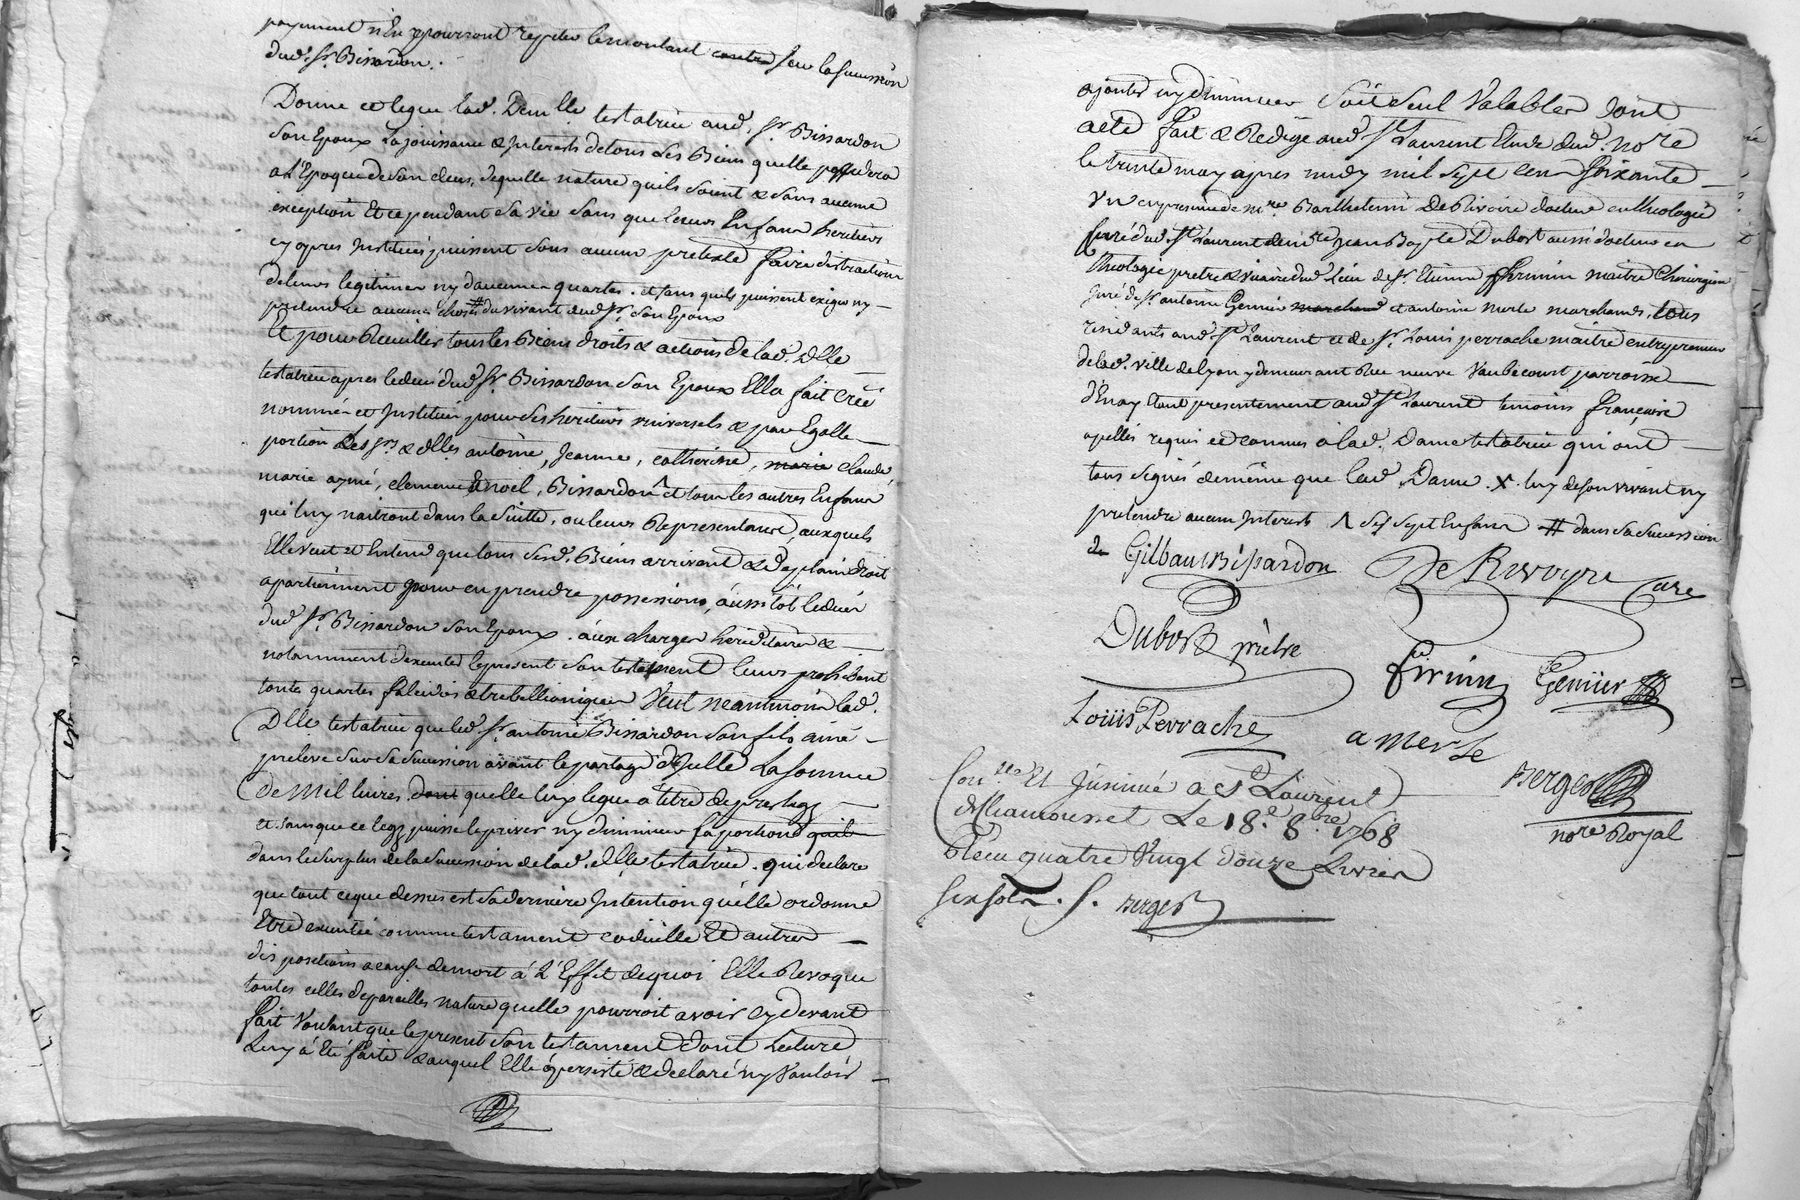 payement n'En pourront repeter le montant contre sur la sucession
dud. Sr. Bissardon.
Donne et legue lad. Demlle testatrice aud. Sr. Bissardon
Son Epoux La joüissance & Interests de tous Les Biens quelle possedera
a L'Epoque de Son deces, de quelle nature quils soient & sans aucune
exception Et ce pendant sa vie sans que Leurs Enfans heritiers
cy apres Institués puissent sous aucun pretexte faire distraction
de leurs legitimes ny d'aucunes quartes. et sans quils puissent exiger ny
pretendre aucune chose # du vivant dud. Sr. Son Epoux
Et pour Recueillir tous les Biens droits & actions de lad. Dlle
testatrice apres le deces dud. Sr. Bissardon Son Epoux Elle a fait Créé
nommé et Institué pour ses heritiers universels & par Egalle
portion Les Srs. & dlles. antoine, Jeanne, catherinne, marie claude
marie aymé, clemence & noël, Bissardon Λ et tous les autres Enfans
qui luy naitront dans la suitte, ou leurs Représentants, auxquels
Elle veut et Entend que tous sesd. Biens arrivent & de plain droit
apartiennent pour en prendre possession, aussitôt le deces
dud. Sr. Bissardon Son Epoux. aux charges hereditaires &
notamment d'executer le present Son testament leurs prohibant
toute quartes falcidies & trebellianiques Veut neanmoins lad.
Dlle. testatrice que led. Sr. antoine Bissardon son fils ainé
preleve sur sa sucession avant le partage d'Icelle La somme
De mil livres dont quelle luy legue a titre de prelegs
et sans que ce legs puisse le priver ny diminuer sa portion quil
dans le surplus de la sucession de lad. dlle testatrice. qui declare
que tout ce que dessus est sa derniere Intention qu'elle ordonne
Etre executée comme testament codicille Et autres
dispositions a cause de mort à L'Effet de quoi Elle Revoque
toutes celles de pareilles nature quelle pourroit avoir cy devant
fait Voulant que le present son testament dont Lecture
Luy à Eté faite & auquel Elle à persisté & declaré ny Vouloir
ajouter ny diminuer Soit seul Valable dont
acte fait & Redigé aud. St. Laurent Etude dud. nore
le trente may apres midy mil sept cent soixante
un en presence de mre. Barthelemi De Rivoire docteur en theologie
curé dud. St. Laurent de mre. jean Baptte Dubost aussi docteur en
theologie pretre & vicaire dud. lieu de Sr. Etienne firmin maitre Chirurgien
juré de Sr. antoine Genier marchand et antoine merle marchands, tous
residants aud. St. Laurent et de Sr. Louis perrache maitre entrepreneur
de lad. ville de Lyon y demeurant Rue neuve Vaubecourt parroisse
d'Enay Etant presentement aud. St. Laurent temoins françois
apellés requis et connus à lad. Dame testatrice qui ont
tous signés de même que lad. Dame. X. luy de son vivant ny
pretendre aucun Interests Λ ses sept Enfans # dans sa sucession
Gilbau Bissardon De Rivoyre Curé
Dubost prêtre
firmin Genier
Loüis Perrache a Merle
Berger
nore Royal
Conlle Et Jnsinué a St Laurent
de Chamousset Le 18e. 8bre 1768
Recu quatre Vingt douze Livres
six sols. S. Berger